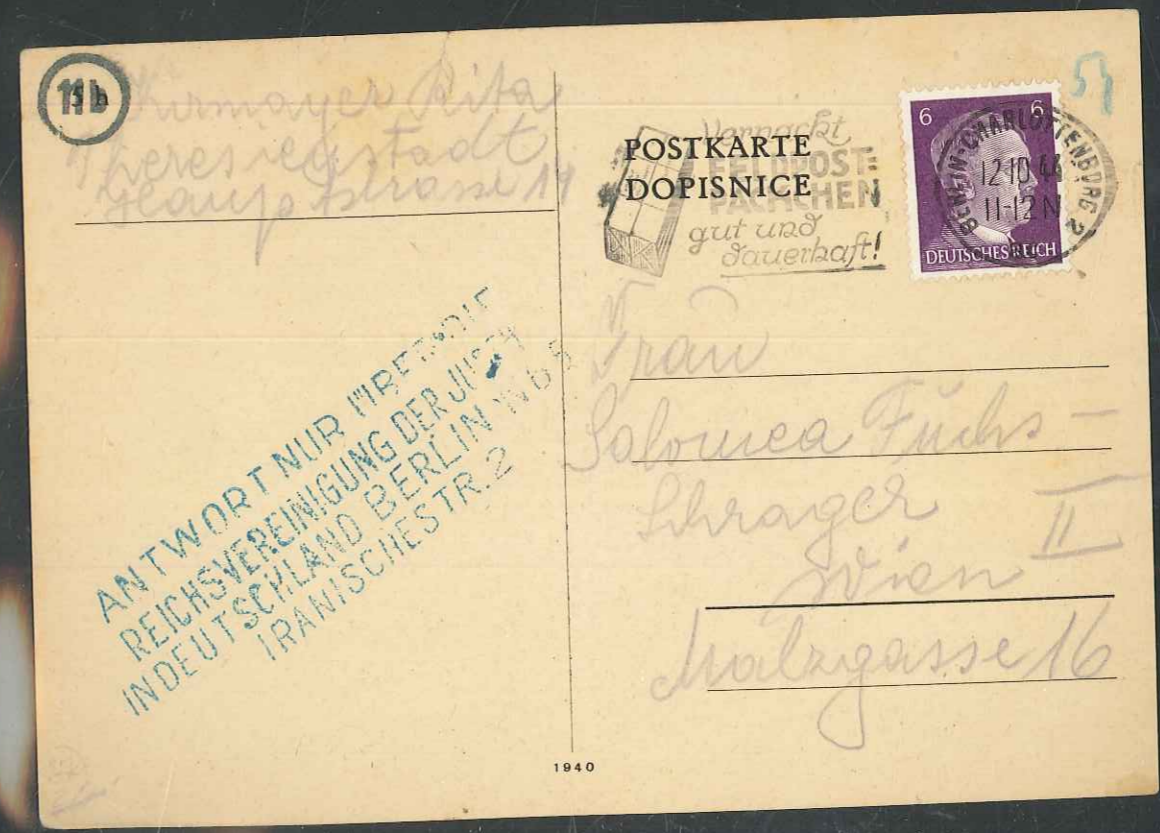 11b
Kurmayer Rita
Theresienstadt
Hauptstrasse 14
POSTKARTE
DOPISNICE
Verpackt
FELDPOST=
PÄCKCHEN
gut und
dauerhaft!
6 6
DEUTSCHES REICH
BERLIN-CHARLOTTENBURG 2
12.10.44
11-12 N
ANTWORT NUR ÜBER DIE
REICHSVEREINIGUNG DER JUDEN
IN DEUTSCHLAND BERLIN N 65
IRANISCHESTR. 2
Frau
Salomea Fuchs-
Schrager
II
Wien
Malzgasse 16
1940